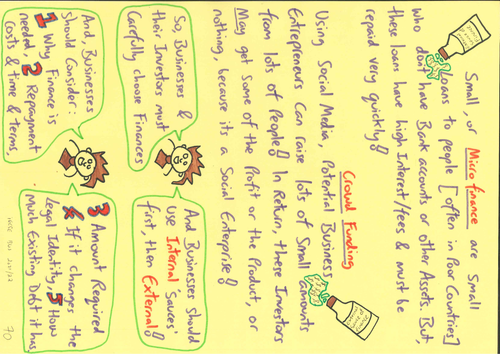 Small, or Micro finance are Small
Loans to people [often in Poor Countries]
who don't have Bank accounts or other Assets. But,
these loans have high Interest/fees & must be
repaid very quickly!
Crowd Funding
Using Social Media, Potential Business
Entrepreneurs can raise lots of Small amounts
from lots of People! In Return, these Investors
May get Some of the Profit or the Product, or
nothing, because its a Social Enterprise!
So, Businesses &
their Investors must
Carefully choose Finances
And Businesses should
Use Internal 'sauces'
first, then External!
And Businesses
should Consider:
1 Why Finance is
needed, 2 Repayment
costs & time & terms,
3 Amount Required
4 If it changes the
Legal Identity, 5 How
Much Existing Debt it has
70